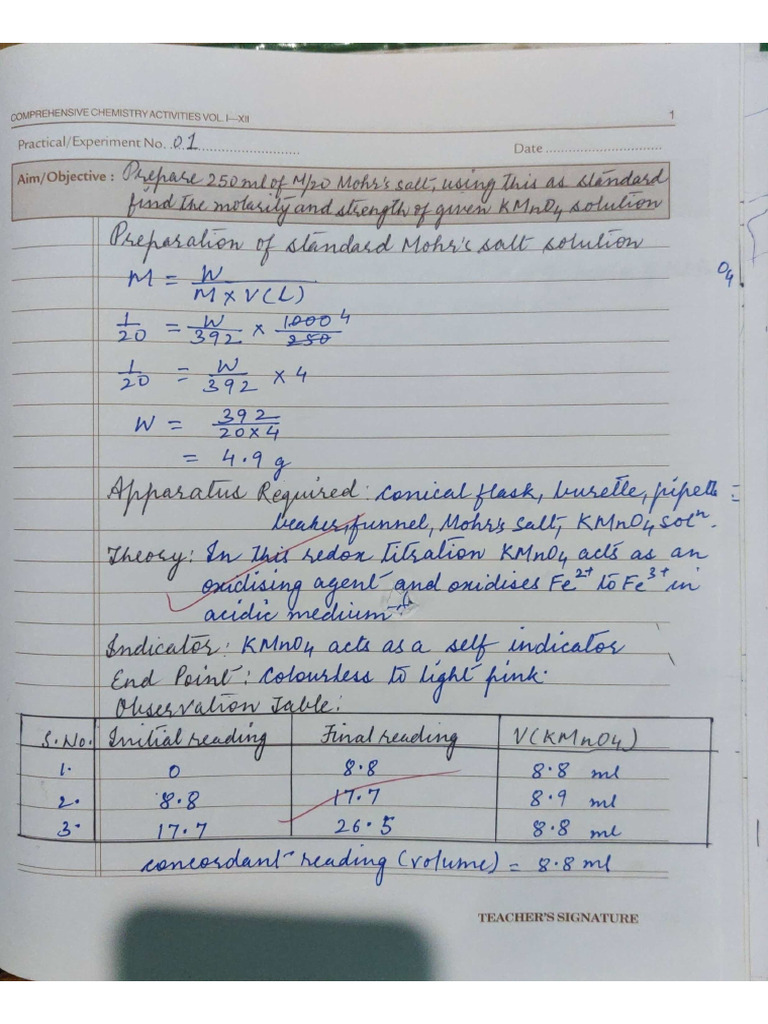 COMPREHENSIVE CHEMISTRY ACTIVITIES VOL. I—XII 1
Practical/Experiment No. 01 Date
Aim/Objective : Prepare 250 ml of M/20 Mohr's salt, using this as standard
find the molarity and strength of given KMnO4 solution
Preparation of standard Mohr's salt solution
M = W / M × V(L)
O4
1/20 = W/392 × 1000/250 4
1/20 = W/392 × 4
W = 392 / 20×4
= 4.9 g
Apparatus Required: conical flask, burette, pipette
beaker, funnel, Mohr's salt, KMnO4 solⁿ.
Theory: In this redox titration KMnO4 acts as an
oxidising agent and oxidises Fe²⁺ to Fe³⁺ in
acidic medium.
Indicator: KMnO4 acts as a self indicator
End Point: Colourless to light pink.
Observation Table:
S.No. Initial reading Final reading V(KMnO4)
1. 0 8.8 8.8 ml
2. 8.8 17.7 8.9 ml
3. 17.7 26.5 8.8 ml
concordant reading (volume) = 8.8 ml
TEACHER'S SIGNATURE